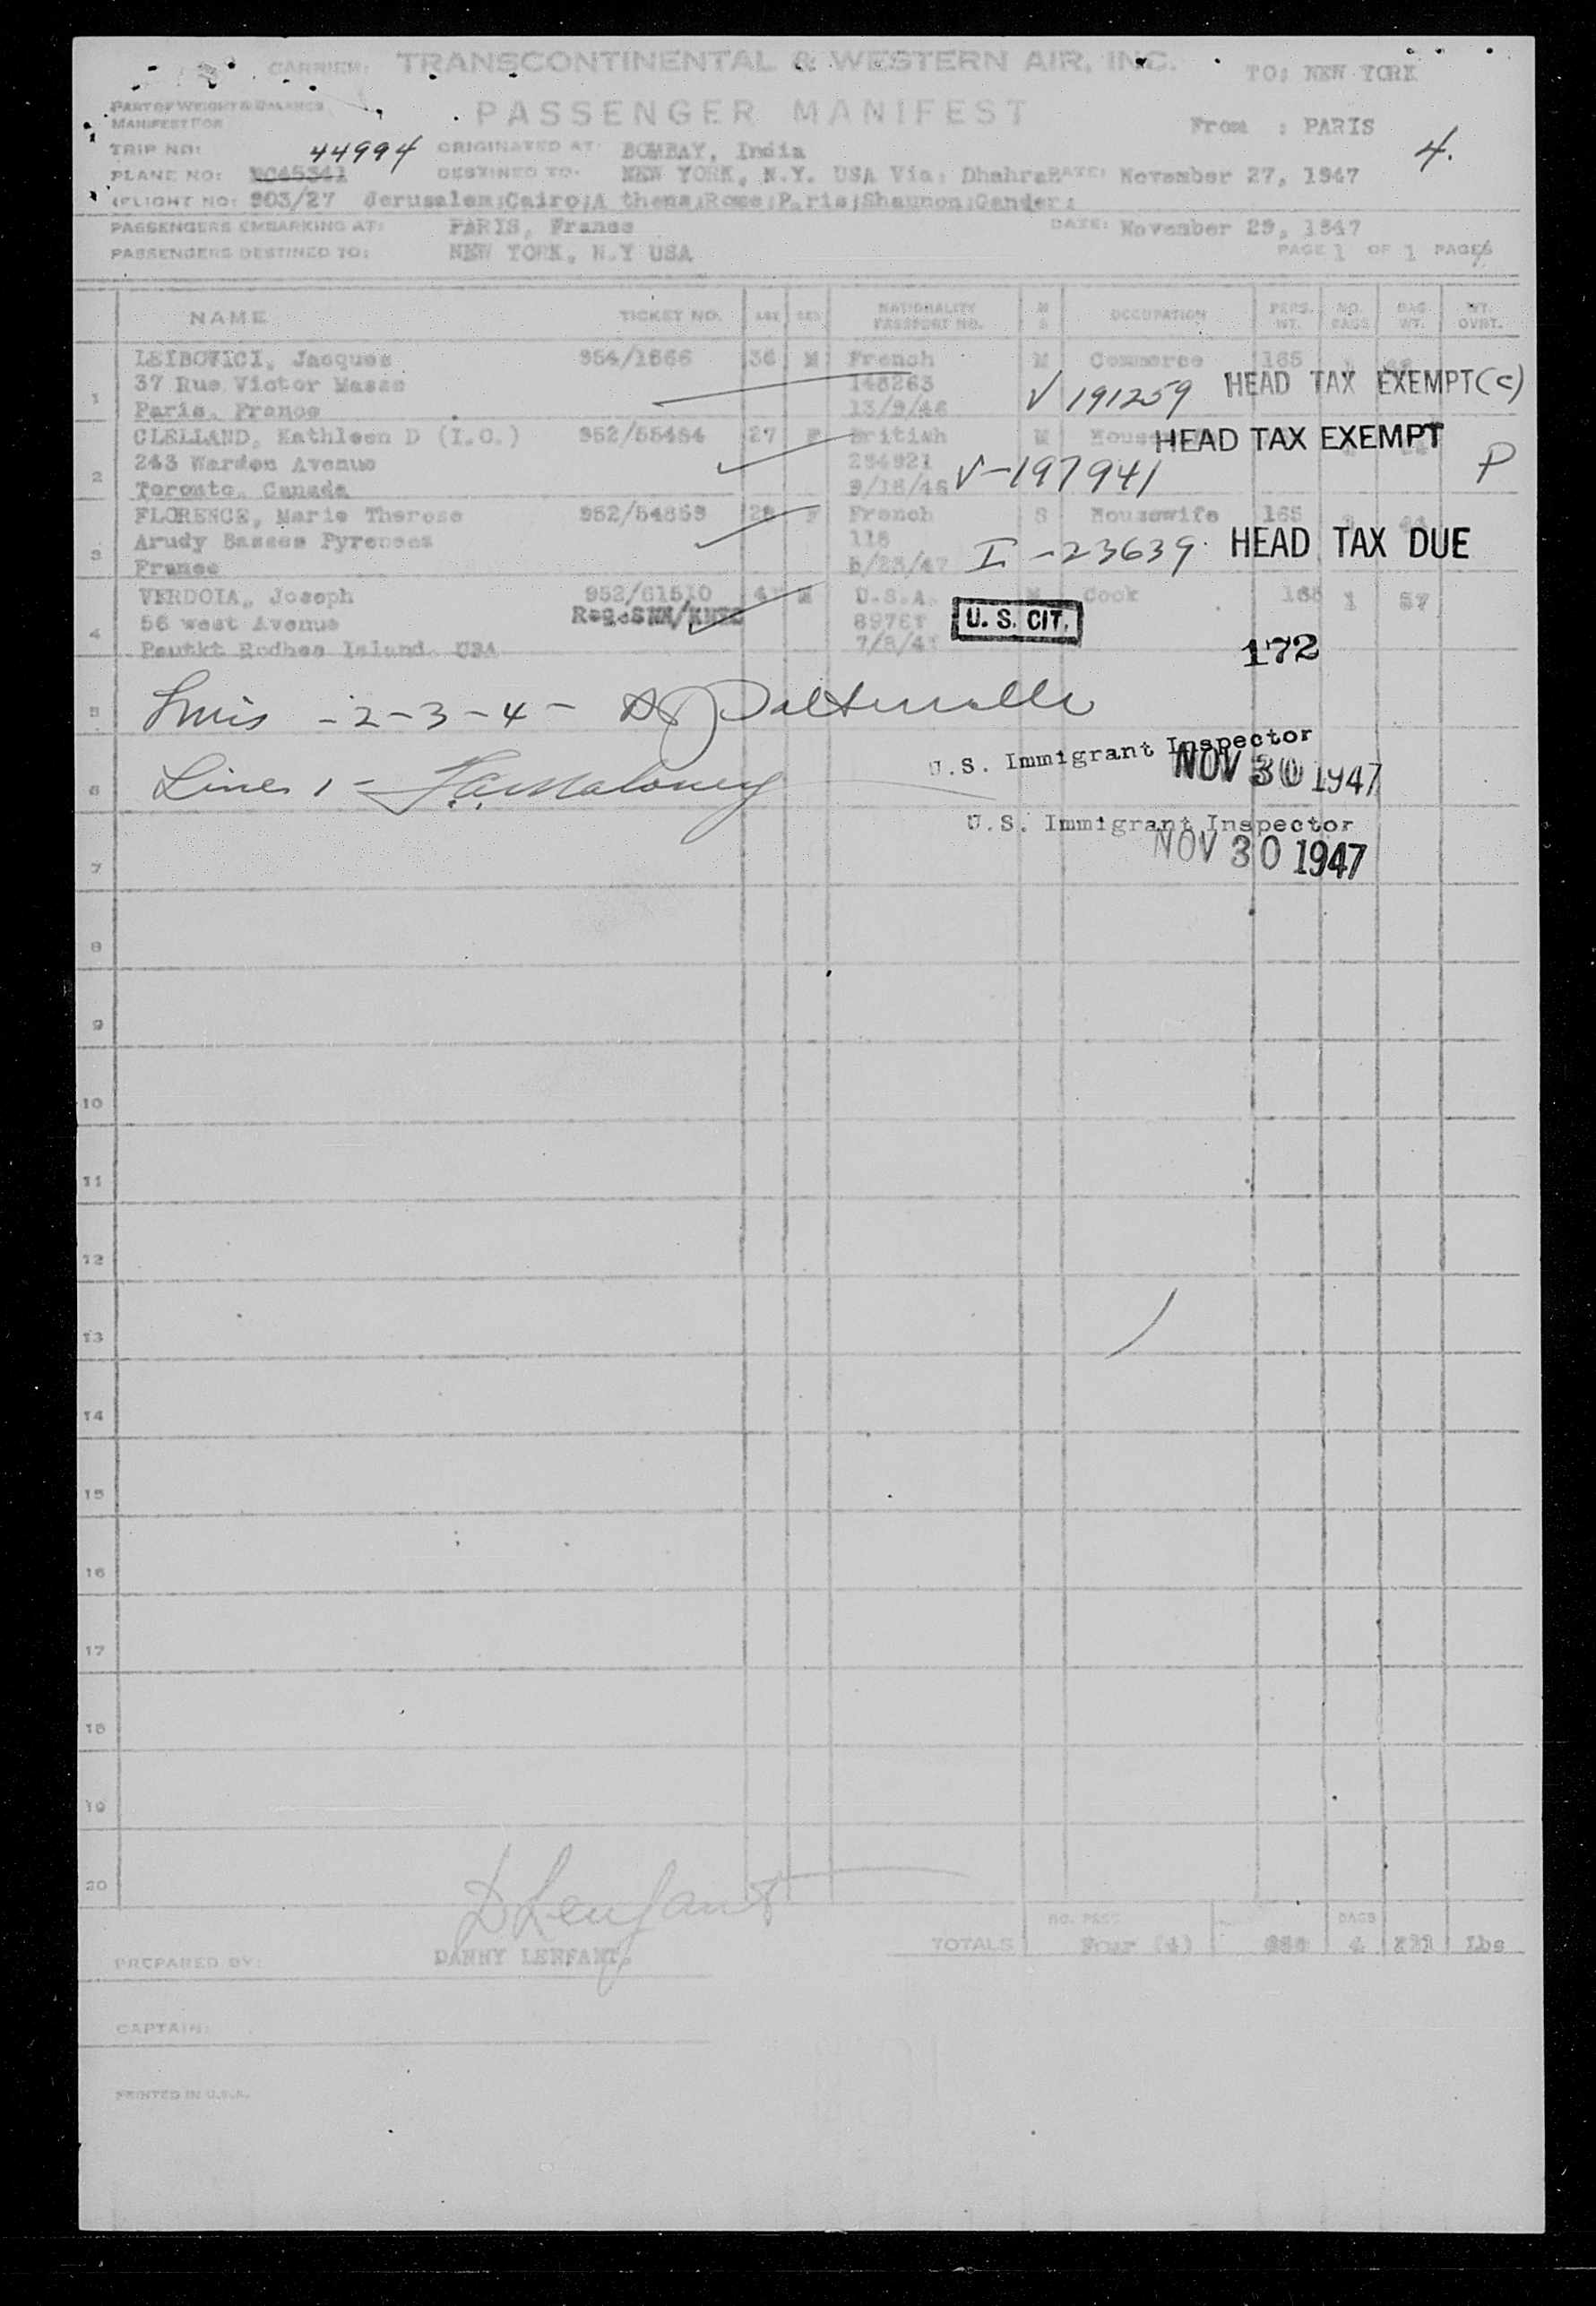 CARRIER: TRANSCONTINENTAL & WESTERN AIR, INC. TO: NEW YORK
PART OF WEIGHT & BALANCE
MANIFEST FOR
PASSENGER MANIFEST
From : PARIS
TRIP NO: 44994 ORIGINATED AT: BOMBAY, India 4.
PLANE NO: NC45341 DESTINED TO: NEW YORK, N.Y. USA Via: Dhahran DATE: November 27, 1947
FLIGHT NO: 903/27 Jerusalem;Cairo;A thens;Rome;Paris;Shannon;Gander;
PASSENGERS EMBARKING AT: PARIS, France DATE: November 29, 1947
PASSENGERS DESTINED TO: NEW YORK, N.Y USA PAGE 1 OF 1 PAGES
NAME TICKET NO. AGE SEX NATIONALITY PASSPORT NO. M S OCCUPATION PERS. WT. NO. BAGS BAG WT. WT. OVBT.
1 LEIBOVICI, Jacques 954/1666 36 M French M Commerce 165
37 Rue Victor Masse 148263 V 191259 HEAD TAX EXEMPT (c)
Paris, France 13/9/46
2 CLELLAND, Kathleen D (I.C.) 952/55484 27 F British M HEAD TAX EXEMPT
243 Warden Avenue 284921 V-197941 P
Toronto, Canada 9/18/46
3 FLORENCE, Marie Therese 952/54869 28 F French S Housewife 165
Arudy Basses Pyrenees 118 I-23639 HEAD TAX DUE
France
4 VERDOIA, Joseph 952/61510 41 M U.S.A. M Cook 165 1 57
56 west Avenue U. S. CIT.
Pautkt Rodhes Island. USA 172
5 -2-3-4-
U.S. Immigrant Inspector
NOV 30 1947
6 Line 1 -
U.S. Immigrant Inspector
NOV 30 1947
7
8
9
10
11
12
13
14
15
16
17
18
19
20
NO. PSGR BAGS
PREPARED BY: DANNY LENFANT. TOTALS Four (4) 4 Lbs
CAPTAIN:
PRINTED IN U.S.A.